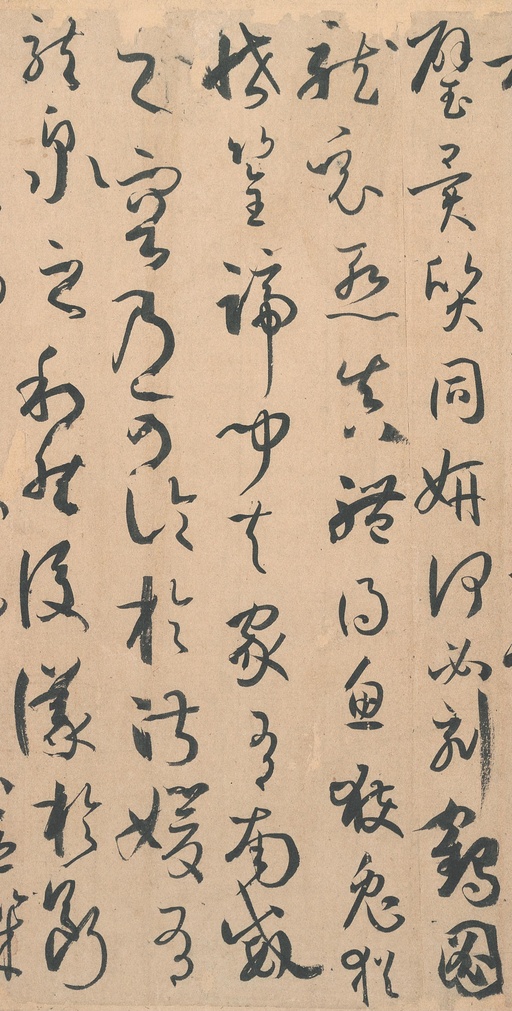 璧異質同妍何必刻鶴圖
龍竟慚真體得魚獲兔猶
恡筌蹄聞夫家有南威
之容乃可論於淑媛有
龍泉之利然後議於斷